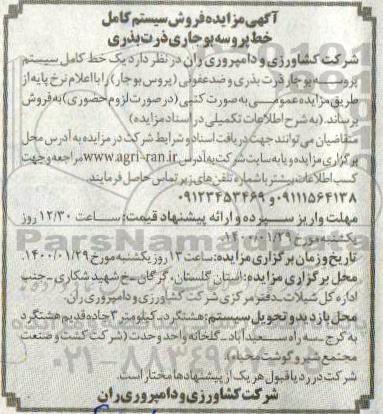 آگهی مزایده فروش سیستم کامل
خط پروسه بوجاری ذرت بذری
شرکت کشاورزی و دامپروری ران در نظر دارد یک خط کامل سیستم
پروسه بوجار ذرت بذری و ضدعفونی (پروس بوجار) را با اعلام نرخ پایه از
طریق مزایده عمومی به صورت کتبی (در صورت لزوم حضوری) به فروش
برساند. (به شرح اطلاعات تکمیلی در اسناد مزایده)
متقاضیان می توانند جهت دریافت اسناد و شرایط شرکت در مزایده به آدرس محل
برگزاری مزایده و یا به سایت شرکت به آدرس www.agri-ran.ir مراجعه و جهت
کسب اطلاعات بیشتر با شماره تلفن های زیر تماس حاصل فرمایند.
۰۹۱۱۱۵۶۴۱۳۸ و ۰۹۱۲۳۴۵۳۴۶۹
مهلت واریز سپرده و ارائه پیشنهاد قیمت: ساعت ۱۲/۳۰ روز
یکشنبه مورخ ۱۴۰۰/۰۱/۲۹
تاریخ و زمان برگزاری مزایده: ساعت ۱۳ روز یکشنبه مورخ ۱۴۰۰/۰۱/۲۹.
محل برگزاری مزایده: استان گلستان، گرگان-خ شهید شکاری-جنب
اداره کل شیلات-دفتر مرکزی شرکت کشاورزی و دامپروری ران.
محل بازدید و تحویل سیستم: هشتگرد، کیلومتر ۳ جاده قدیم هشتگرد
به کرج-سه راه سعیدآباد-گلخانه واحد وحدت (شرکت کشت و صنعت
مجتمع شیر و گوشت مهیا)
شرکت در رد یا قبول هر یک از پیشنهادها مختار است
شرکت کشاورزی و دامپروری ران
ParsNamadData
۰۲۱-۸۸۳۴۹۶